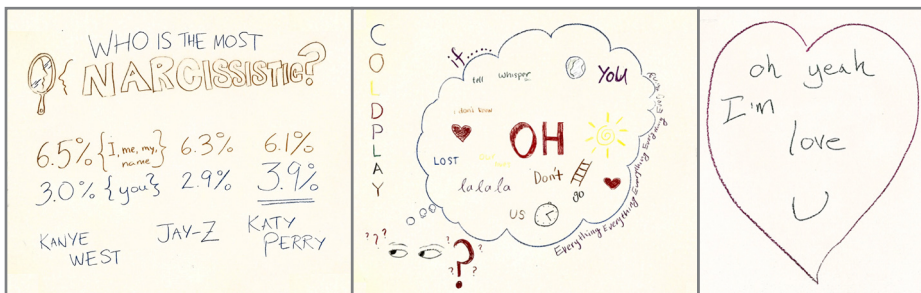 WHO IS THE MOST
NARCISSISTIC?
6.5% {I, me, my, name} 6.3% 6.1%
3.0% {you} 2.9% 3.9%
KANYE WEST
JAY-Z
KATY PERRY
COLDPLAY
if......
tell
whisper
You
i don't know
OH
LOST
la la la
Don't
US
Everything Everything Everything Everything
???
?
oh yeah
I'm
love
U